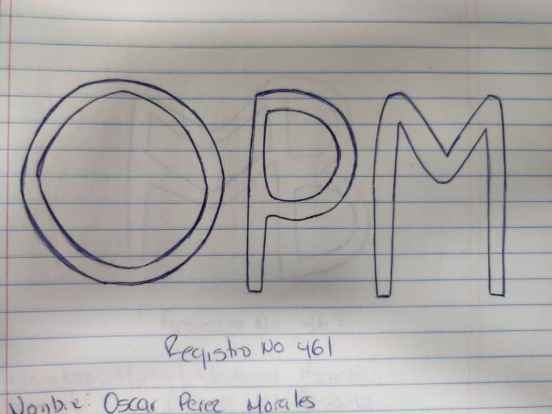 OPM
Registro No 461
Nombre: Oscar Perez Morales